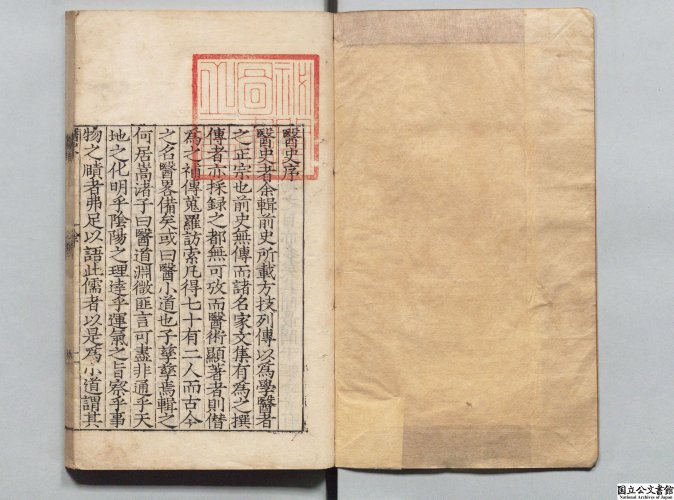 醫史序
醫史者余輯前史所載方技列傳以為學醫者
之正宗也前史無傳而諸名家文集有為之撰
傳者亦採録之都無可攷而醫術顯著者則僭
為之補傳蒐羅訪索凡得七十有二人而古今
之名醫畧備矣或曰醫小道也子孳孳焉輯之
何居嵩渚子曰醫道淵微匪言可盡非通乎天
地之化明乎陰陽之理逹乎運氣之旨察乎事
物之賾者弗足以語此儒者以是為小道謂其
国立公文書館
National Archives of Japan